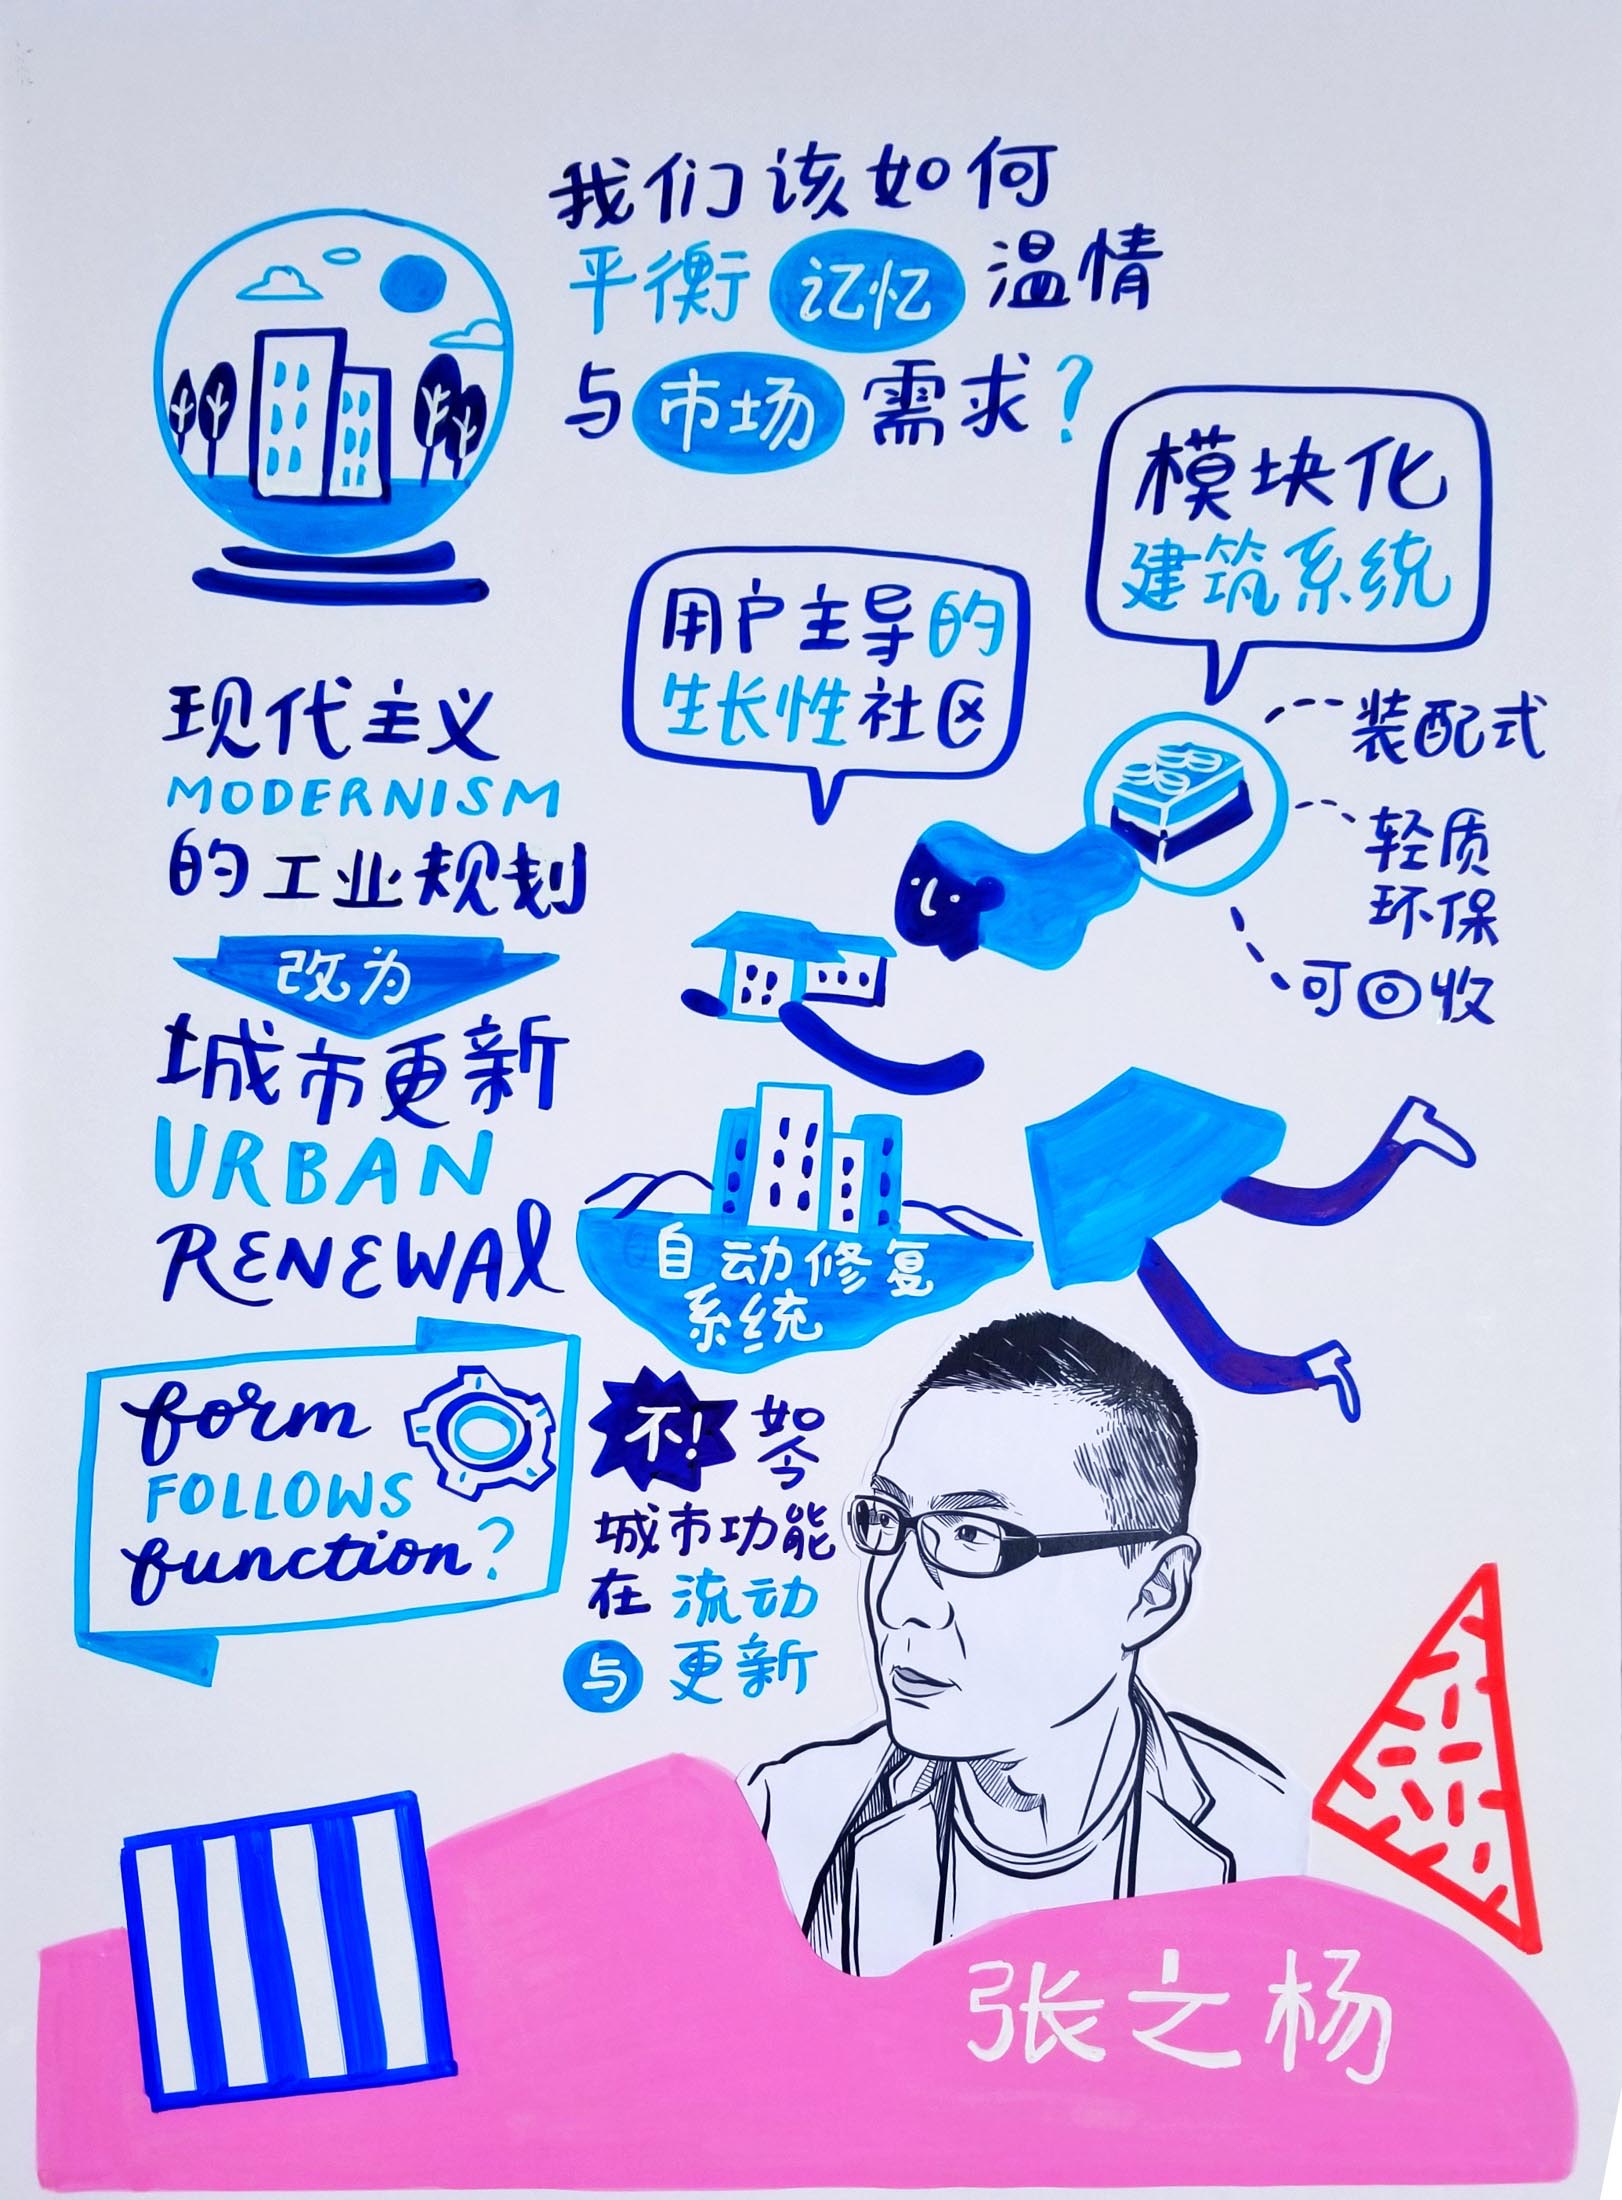 我们该如何
平衡 记忆 温情
与 市场 需求?
模块化
建筑系统
用户主导的
生长性社区
装配式
轻质
环保
可回收
现代主义
MODERNISM
的工业规划
改为
城市更新
URBAN
RENEWAL
自动修复
系统
form
FOLLOWS
function?
不! 如今
城市功能
在 流动
与 更新
张之杨